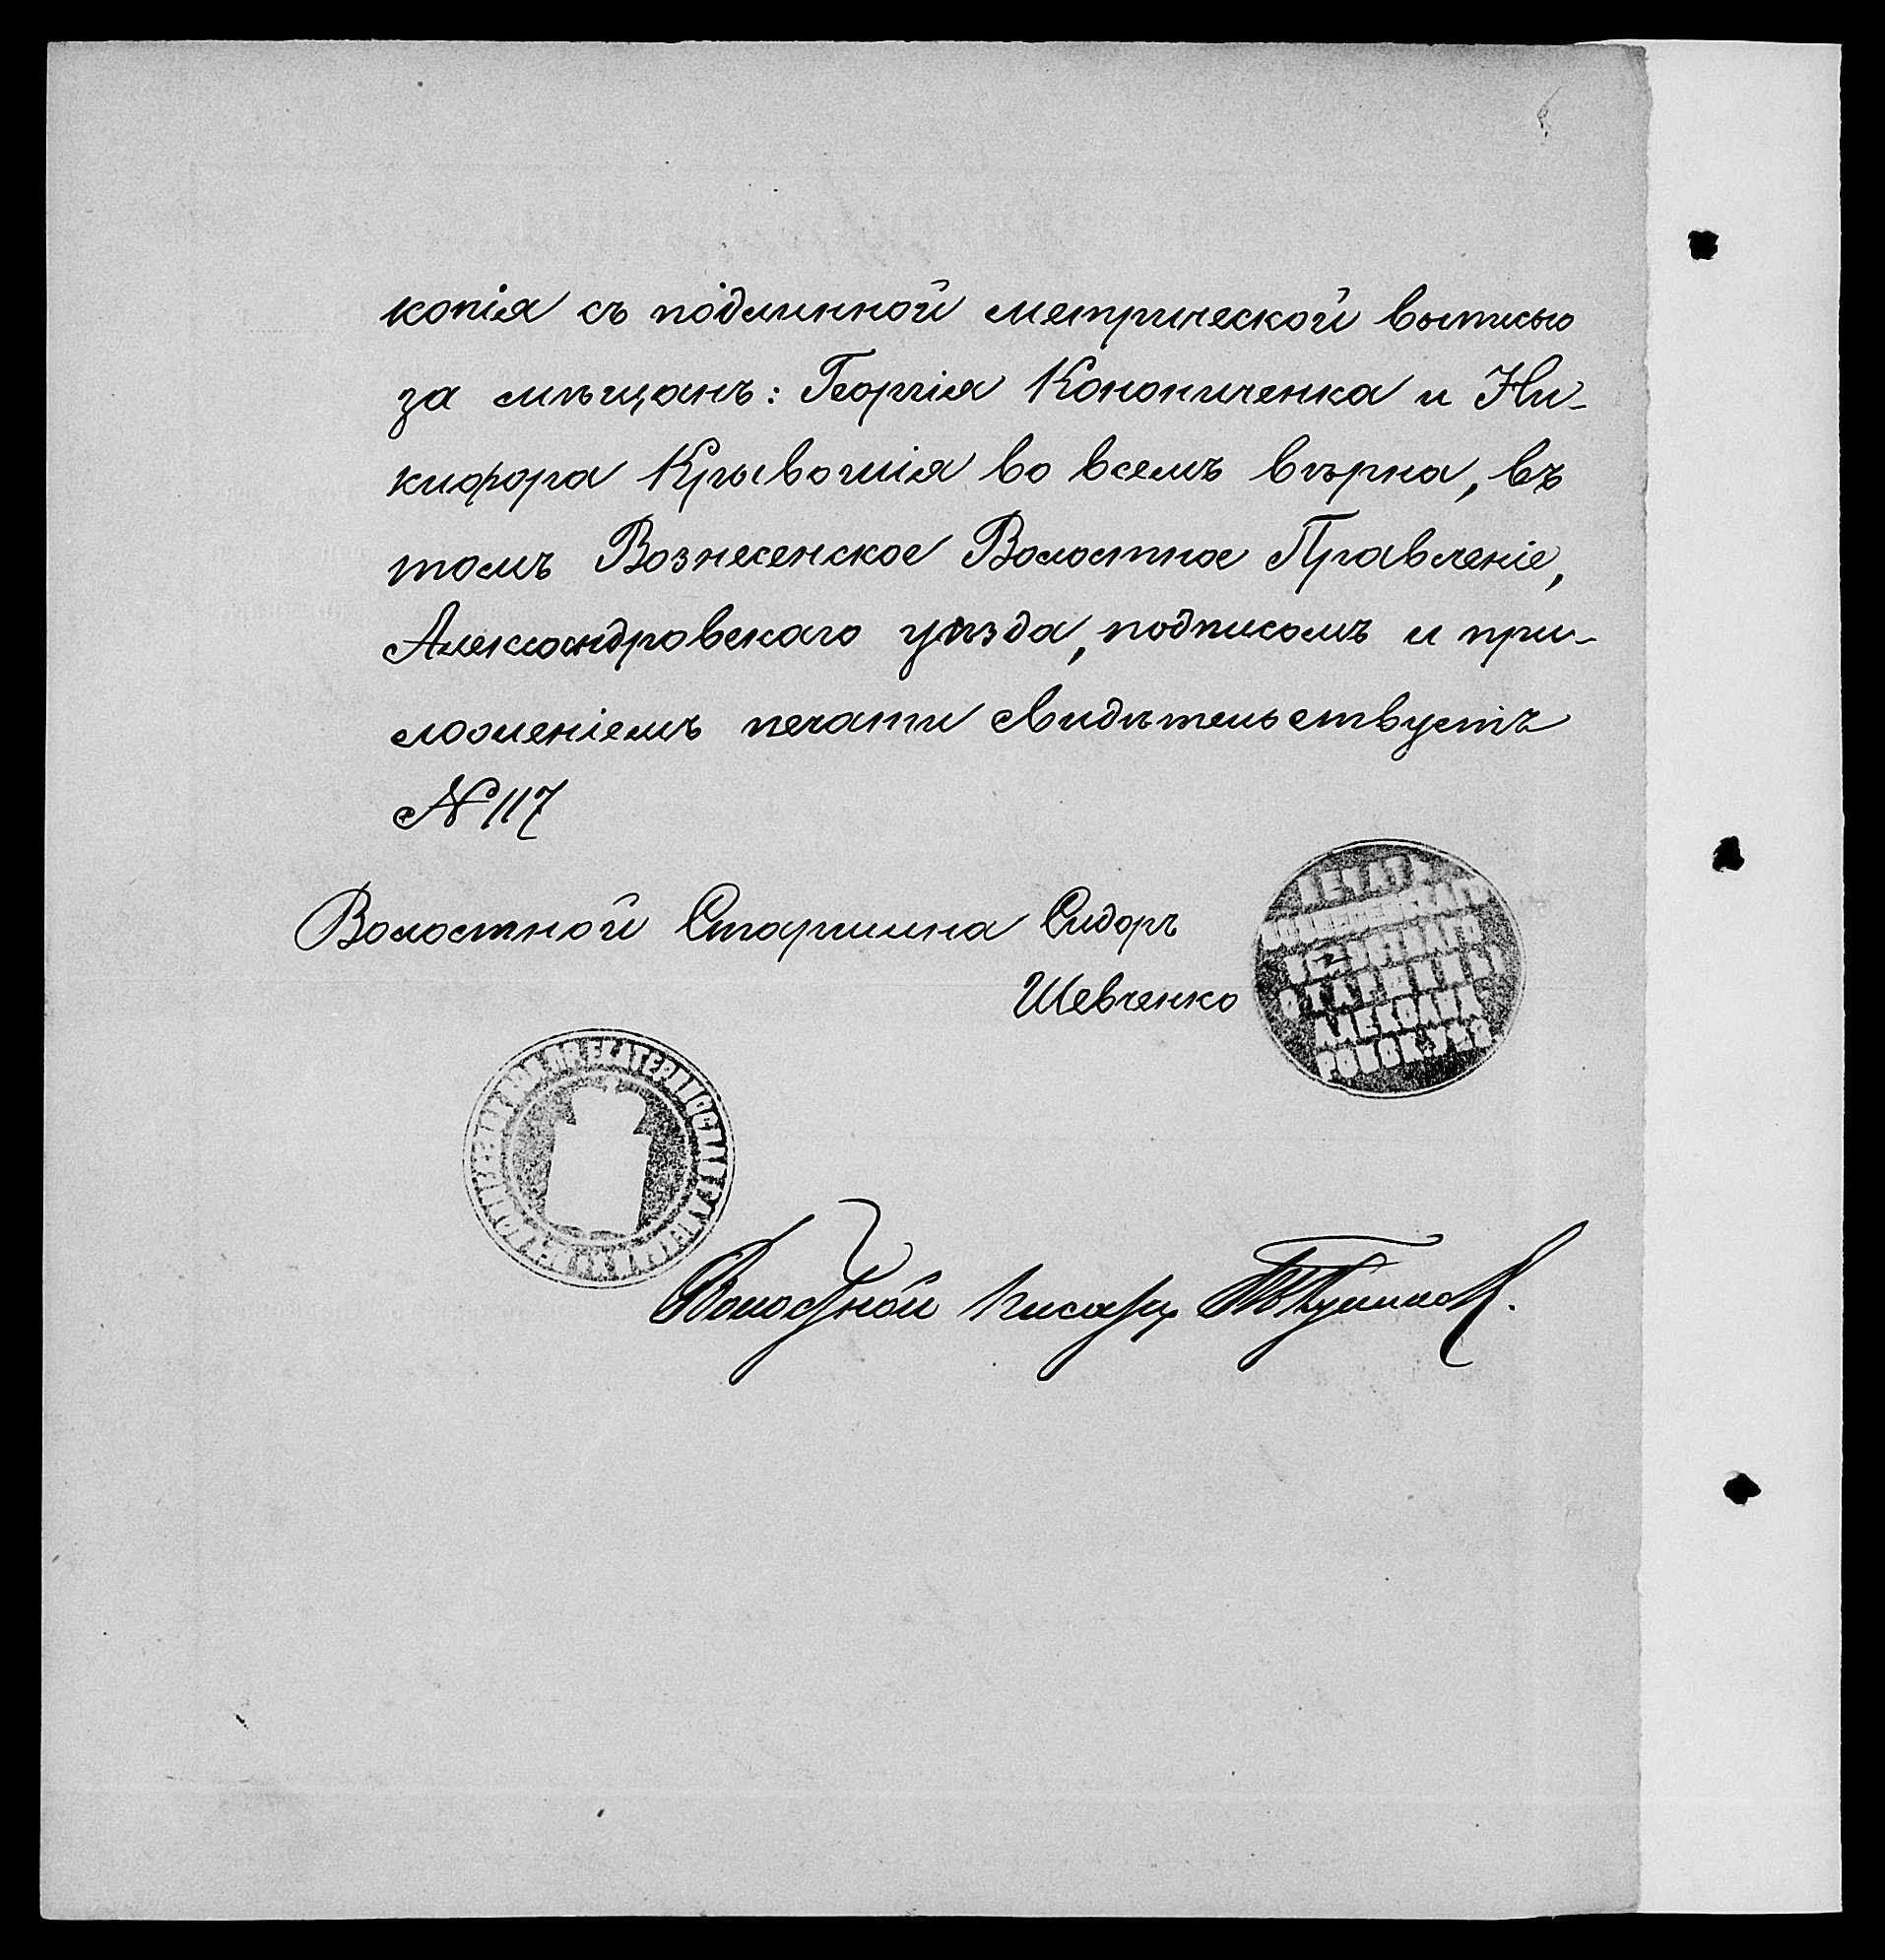 копія съ подлинной метрической выписью
за мѣщанъ: Георгія Конониченка и Ни-
кифора Крывошія во всемъ вѣрна, въ
томъ Вознесенское Волостное Правленіе,
Александровскаго уѣзда, подписомъ и при-
ложеніемъ печати свидѣтельствуетъ
№ 117
Волостной Старшина Сидоръ
Шевченко
ПЕЧАТЬ
ВОЗНЕСЕНСКАГО
ВОЛОСТНАГО
СТАРШИНЫ
АЛЕКСАНД
РОВСК. УѢЗ.
ВОЛ. ПР. ЕКАТЕРИНОСЛ.
Волостной писарь